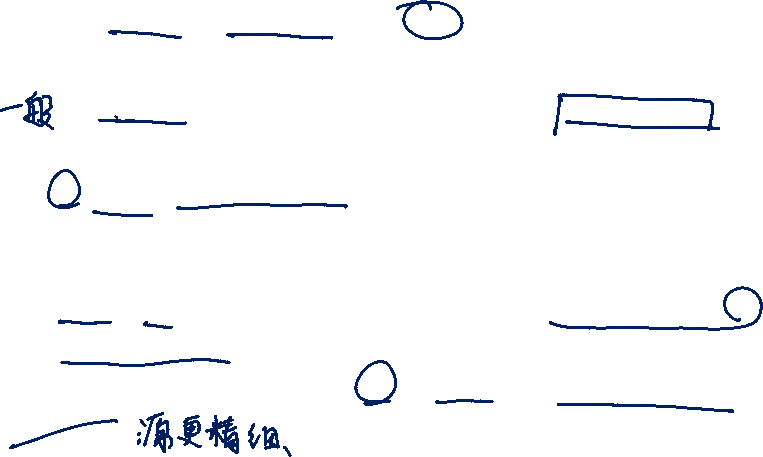 一般
源更精细、